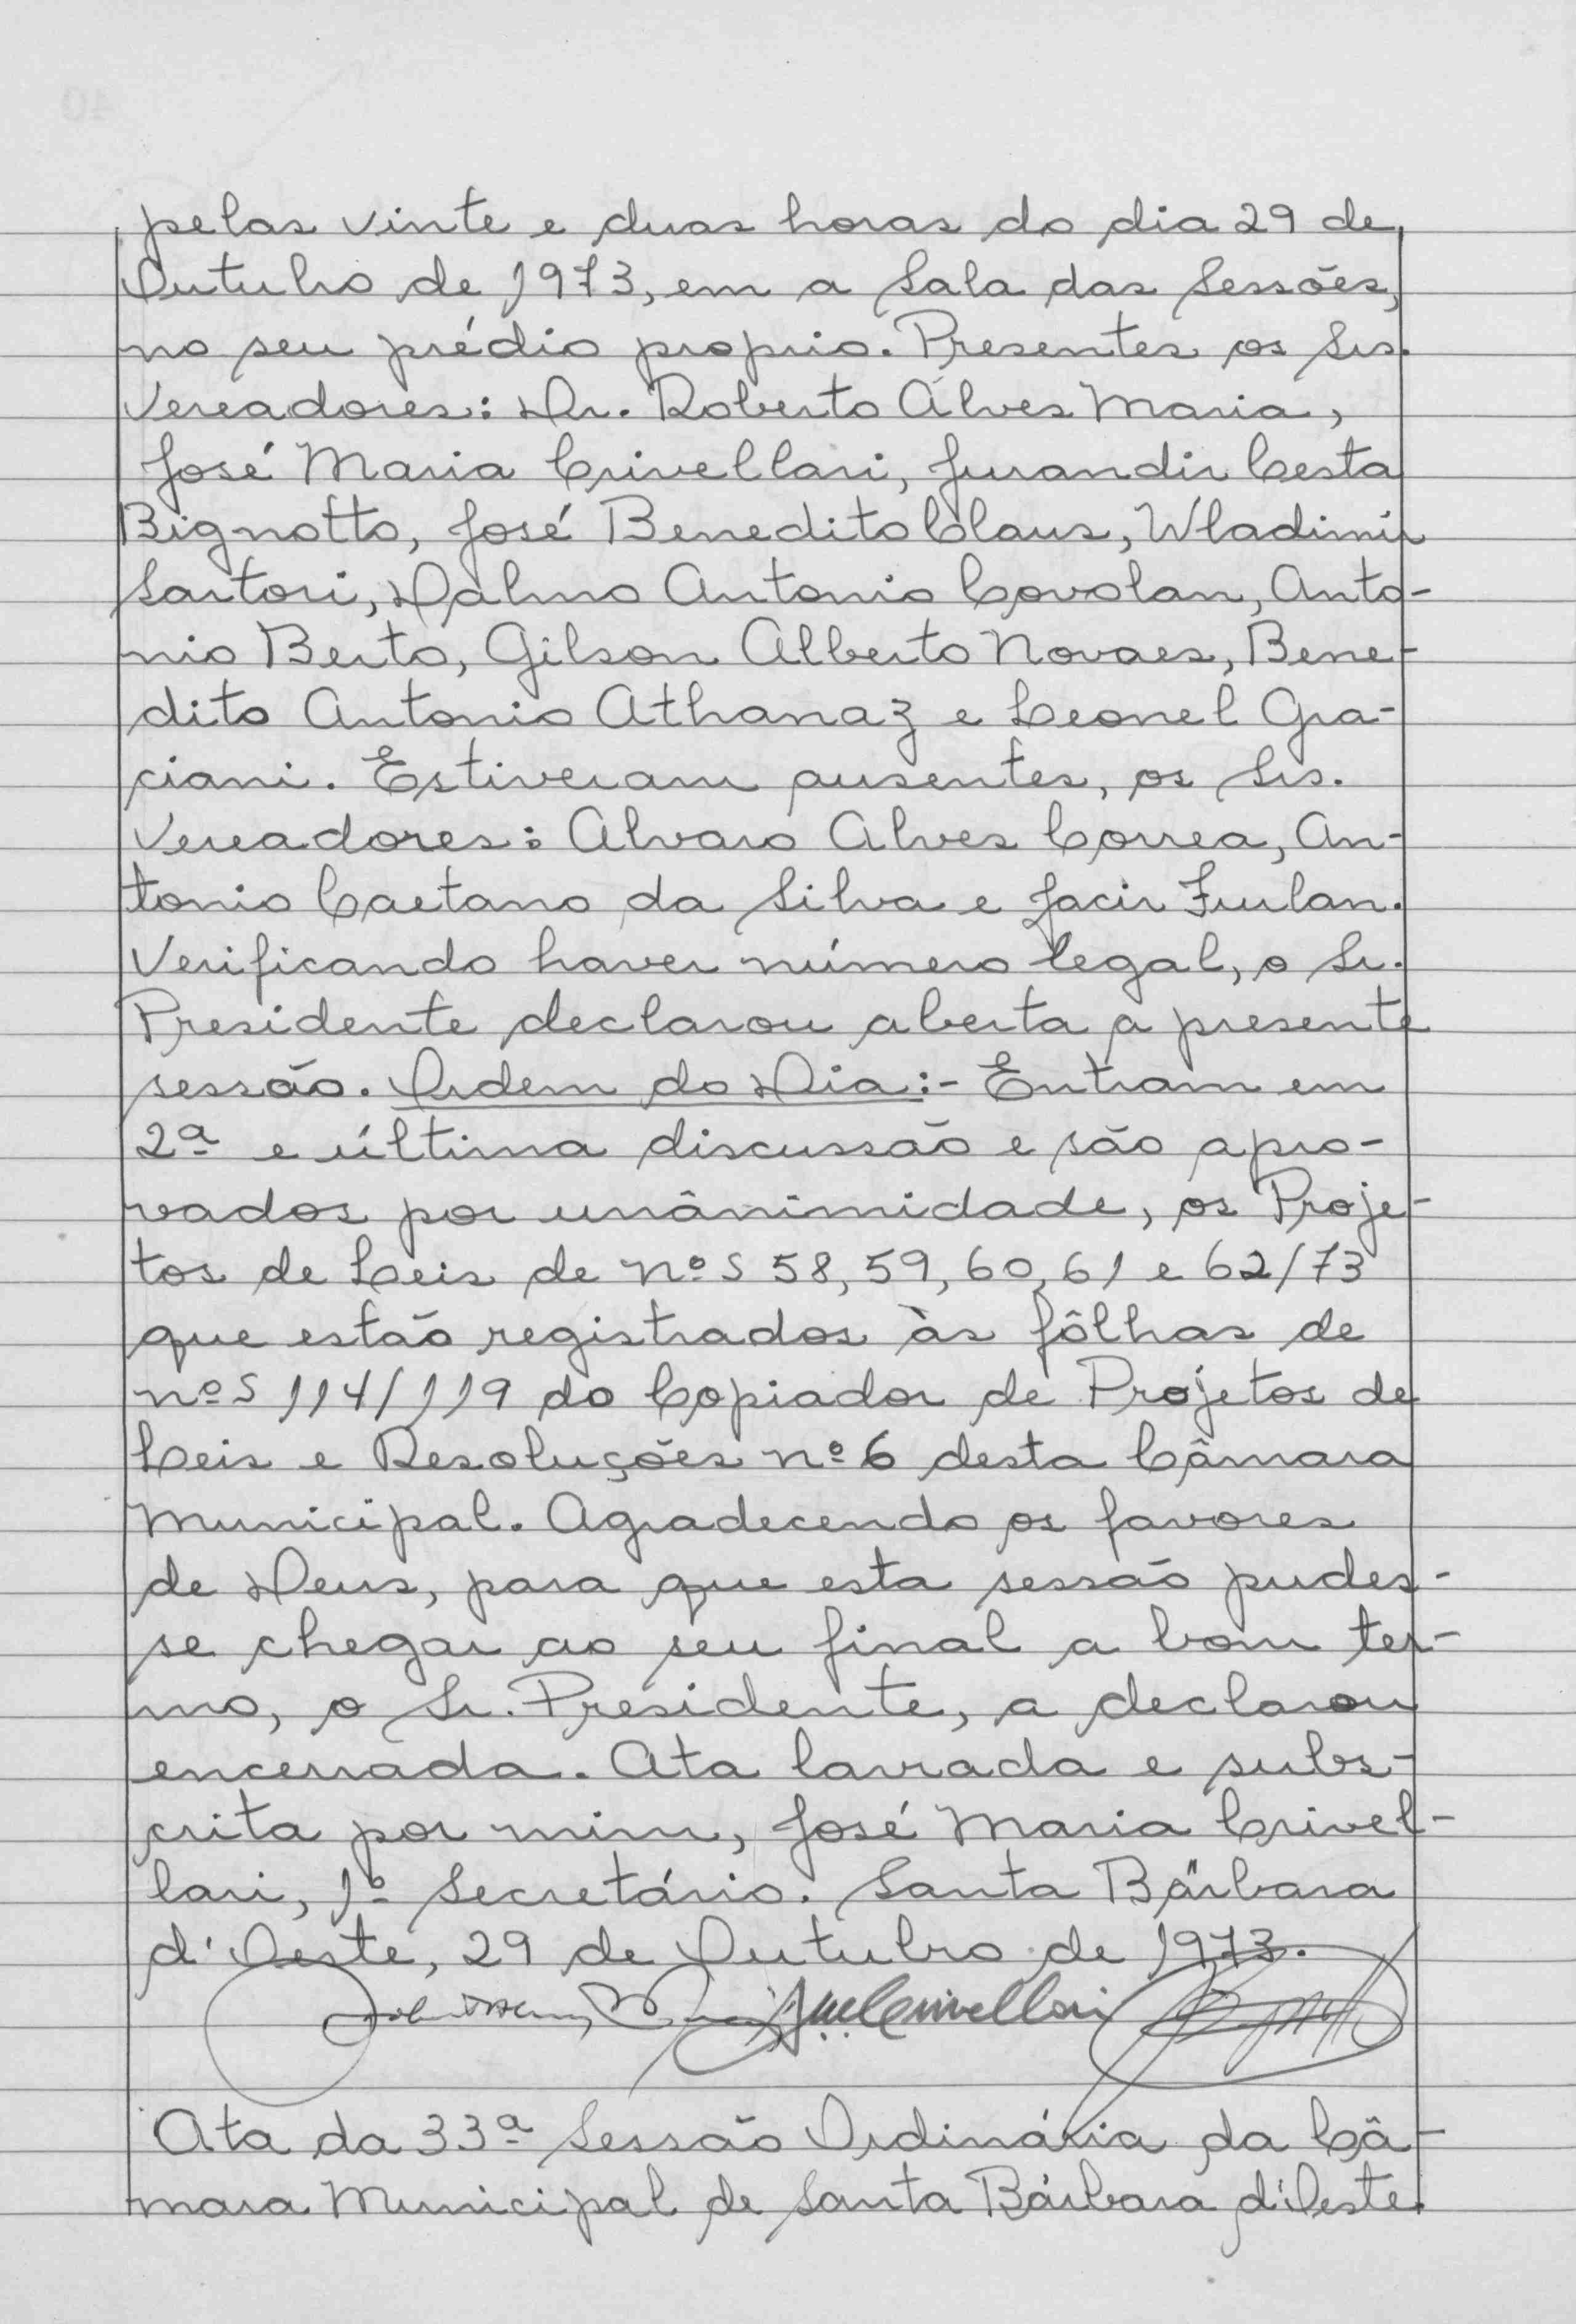 pelas vinte e duas horas do dia 29 de
Outubro de 1973, em a Sala das Sessões,
no seu prédio proprio. Presentes os Srs.
Vereadores: Dr. Roberto Alves Maria,
José Maria Crivellari, Jurandir Cesta
Bignotto, José Benedito Claus, Wladimir
Sartori, Dalmo Antonio Covolan, Anto-
nio Berto, Gilson Alberto Novaes, Bene-
dito Antonio Athanaz e Leonel Gra-
ciani. Estiveram ausentes, os Srs.
Vereadores: Alvaro Alves Correa, An-
tonio Caetano da Silva e Jacir Furlan.
Verificando haver número legal, o Sr.
Presidente declarou aberta a presente
sessão. Ordem do Dia:- Entram em
2ª e última discussão e são apro-
vados por unânimidade, os Proje-
tos de Leis de nºs 58, 59, 60, 61 e 62/73
que estão registrados às fôlhas de
nºs 114/119 do Copiador de Projetos de
Leis e Resoluções nº 6 desta Câmara
Municipal. Agradecendo os favores
de Deus, para que esta sessão pudes-
se chegar ao seu final a bom ter-
mo, o Sr. Presidente, a declarou
encerrada. Ata lavrada e subs-
crita por mim, José Maria Crivel-
lari, 1º Secretário. Santa Bárbara
d'Oeste, 29 de Outubro de 1973.
J.M.Crivellari
Ata da 33ª Sessão Ordinária da Câ-
mara Municipal de Santa Bárbara d'Oeste.